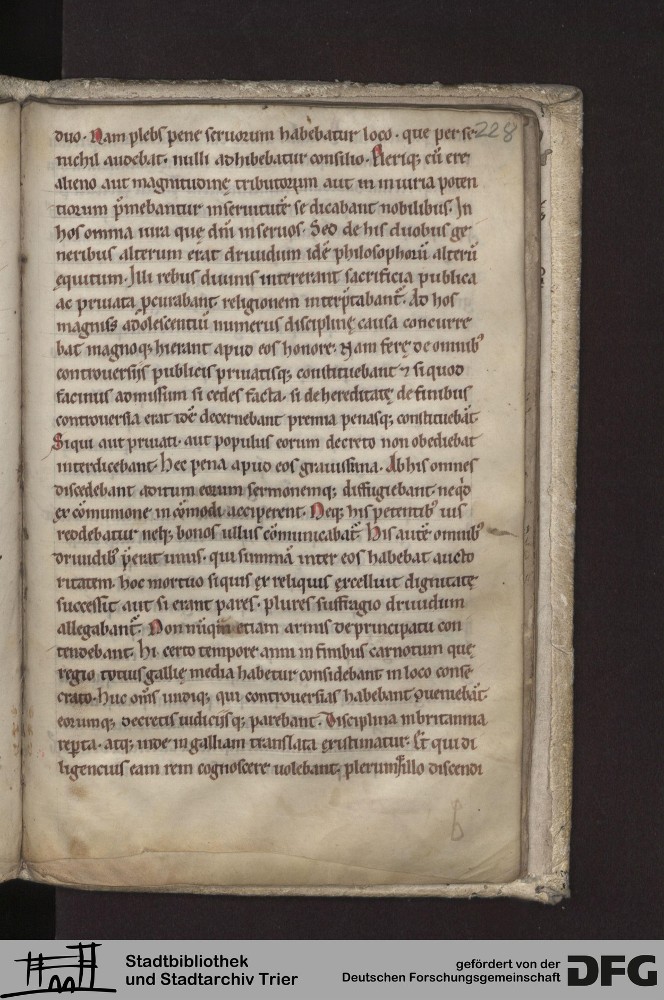 duo. Nam plebs pene seruorum habebatur loco. que per se 228
nichil audebat. nulli adhibebatur consilio. Pleriq; cū ere
alieno aut magnitudinę tributorum aut in iniuria poten
tiorum p̄mebantur inseruitutē se dicabant nobilibus. In
hos omnia iura que dn̄i inseruos. Sed de his duobus ge
neribus alterum erat druidum idē philosophorū alterū
equitum. Illi rebus diuinis intererant sacrificia publica
ac priuata pcurabant religionem interp̄tabant̄. Ad hos
magnus adolescentiū numerus disciplinę causa concurre
bat magnoq; hierant apud eos honore. Nam ferę de omnib;
controuersiis publicis priuatisq; constituebant ⁊ si quod
facinus admissum si cedes facta. si dehereditatę definibus
controuersia erat idē decernebant premia penasq; constituebāt.
Siqui aut priuati. aut populus eorum decreto non obediebat
interdicebant. Hec pena apud eos grauissima. Ab his omnes
discedebant aditum eorum sermonemq; diffugiebant. neqd
ex cōmunione incōmodi acciperent. Neq; his petentib; ius
reddebatur neq; bonos ullus cōmunicabat̄. His autē omnib;
druidib; p̄erat unus. qui summā inter eos habebat aucto
ritatem. hoc mortuo siquis ex reliquis excelluit dignitatę
successit aut si erant pares. plures suffragio druidum
allegabant̄. Non nūqm etiam armis de principatu con
tendebant. Hi certo tempore anni in finibus carnotum que
regio totius gallię media habetur considebant in loco conse
crato. Huc om̄s undiq; qui controuersias habebant ueniebāt.
eorumq; decretis iudiciisq; parebant. Disciplina inbritannia
repta. atq; inde in galliam translata existimatur. Et qui di
ligencius eam rem cognoscere uolebant. plerumq; illo discendi
Stadtbibliothek
und Stadtarchiv Trier
gefördert von der
Deutschen Forschungsgemeinschaft
DFG